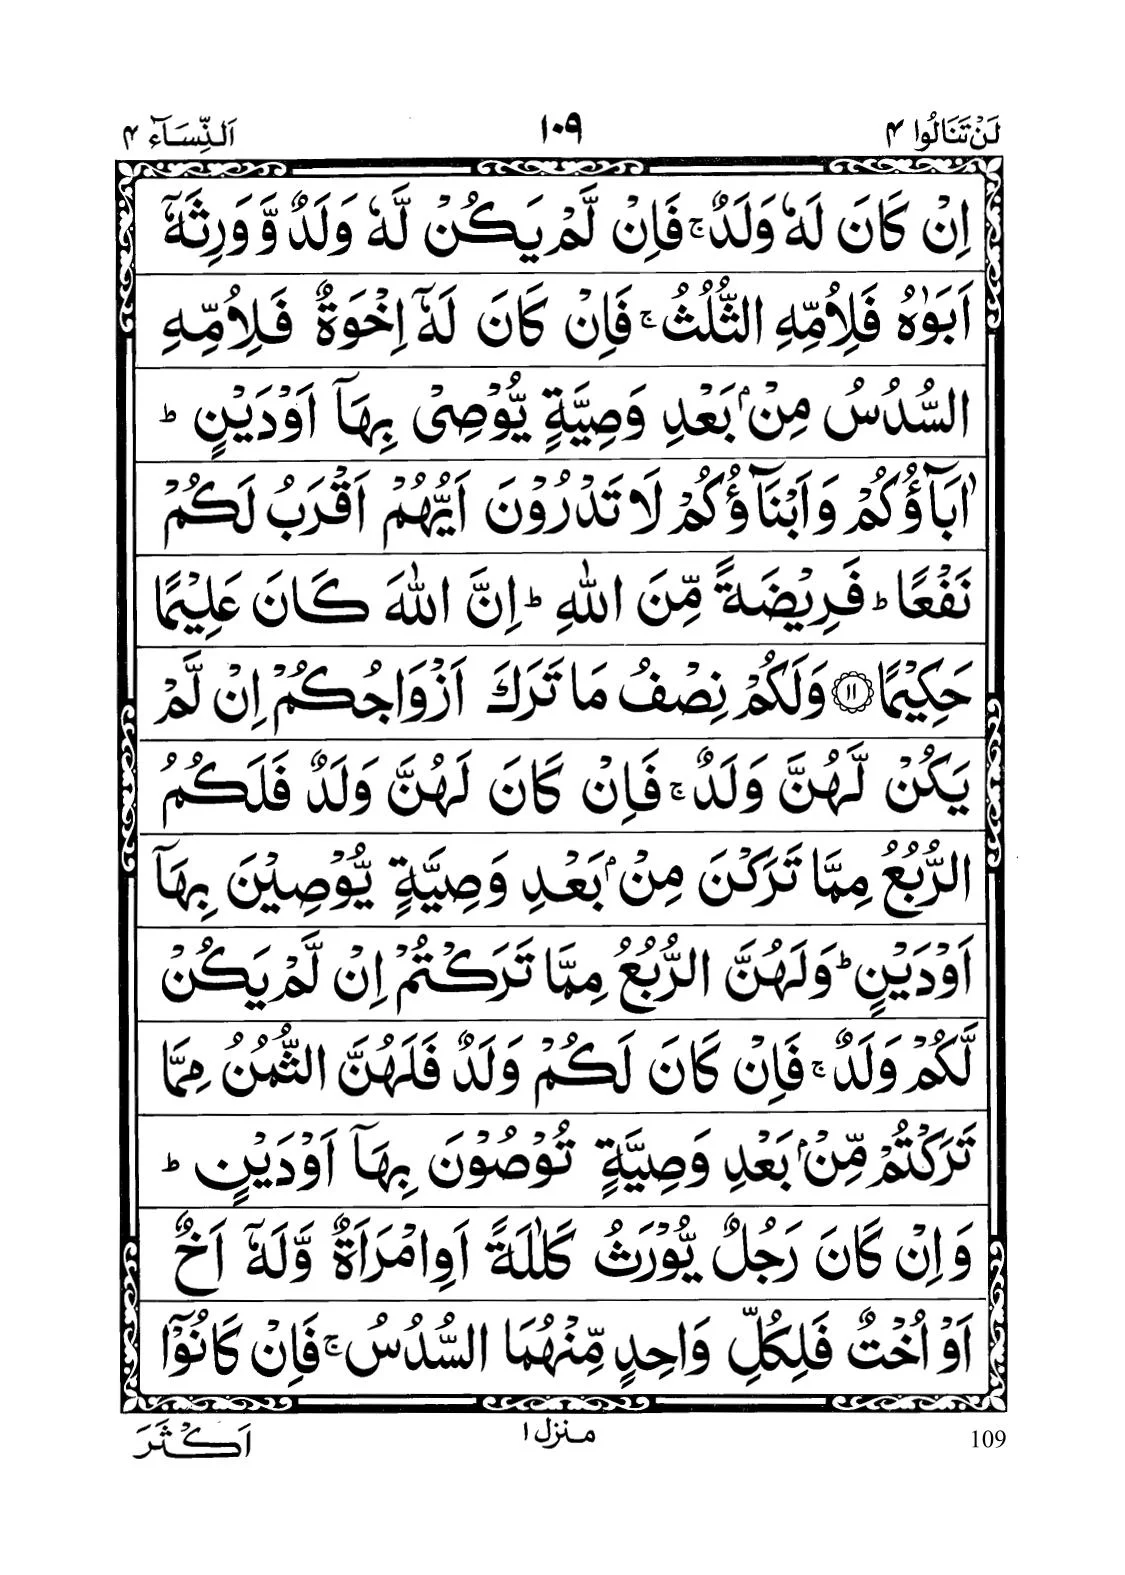 لَنْ تَنَالُوا ۴
۱۰۹
اَلنِّسَآء ۴
اِنْ كَانَ لَهٗ وَلَدٌ ۚ فَاِنْ لَّمْ يَكُنْ لَّهٗ وَلَدٌ وَّ وَرِثَهٗٓ
اَبَوٰهُ فَلِاُمِّهِ الثُّلُثُ ۚ فَاِنْ كَانَ لَهٗٓ اِخْوَةٌ فَلِاُمِّهِ
السُّدُسُ مِنْۢ بَعْدِ وَصِيَّةٍ يُّوْصِىْ بِهَآ اَوْ دَيْنٍ ؕ
اٰبَآؤُكُمْ وَ اَبْنَآؤُكُمْ لَا تَدْرُوْنَ اَيُّهُمْ اَقْرَبُ لَكُمْ
نَفْعًا ؕ فَرِيْضَةً مِّنَ اللّٰهِ ؕ اِنَّ اللّٰهَ كَانَ عَلِيْمًا
حَكِيْمًا ۱۱ وَلَكُمْ نِصْفُ مَا تَرَكَ اَزْوَاجُكُمْ اِنْ لَّمْ
يَكُنْ لَّهُنَّ وَلَدٌ ۚ فَاِنْ كَانَ لَهُنَّ وَلَدٌ فَلَكُمُ
الرُّبُعُ مِمَّا تَرَكْنَ مِنْۢ بَعْدِ وَصِيَّةٍ يُّوْصِيْنَ بِهَآ
اَوْ دَيْنٍ ؕ وَلَهُنَّ الرُّبُعُ مِمَّا تَرَكْتُمْ اِنْ لَّمْ يَكُنْ
لَّكُمْ وَلَدٌ ۚ فَاِنْ كَانَ لَكُمْ وَلَدٌ فَلَهُنَّ الثُّمُنُ مِمَّا
تَرَكْتُمْ مِّنْۢ بَعْدِ وَصِيَّةٍ تُوْصُوْنَ بِهَآ اَوْ دَيْنٍ ؕ
وَ اِنْ كَانَ رَجُلٌ يُّوْرَثُ كَلٰلَةً اَوِ امْرَاَةٌ وَّلَهٗٓ اَخٌ
اَوْ اُخْتٌ فَلِكُلِّ وَاحِدٍ مِّنْهُمَا السُّدُسُ ۚ فَاِنْ كَانُوْٓا
109
منزل ۱
اَكْثَرَ